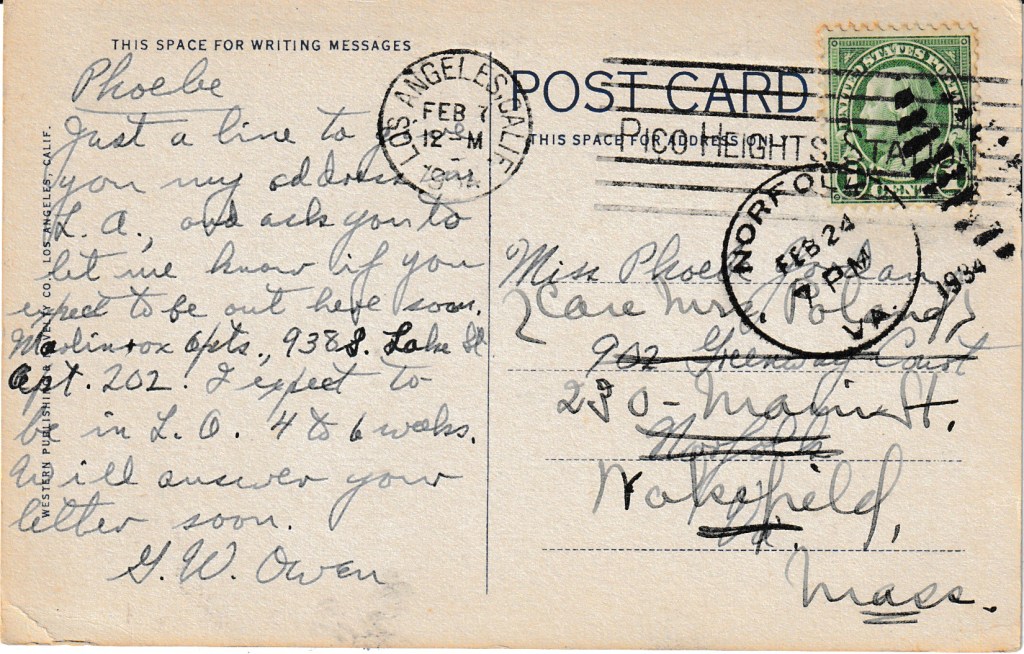 THIS SPACE FOR WRITING MESSAGES
Phoebe
Just a line to
you my address
L. A., and ask you to
let me know if you
expect to be out here soon.
Apts., 938 S. Lake St
Apt. 202. I expect to
be in L. A. 4 to 6 weeks.
Will answer your
letter soon.
G. W. Owen
WESTERN PUBLISHING & NOVELTY CO., LOS ANGELES, CALIF.
LOS ANGELES, CALIF.
FEB 7
12 M
1934
POST CARD
THIS SPACE FOR ADDRESS ONLY
PICO HEIGHTS STATION
UNITED STATES POSTAGE
1 CENT 1
NORFOLK
FEB 24
7 PM
1934
VA.
Miss Phoebe
(Care Mrs. Poland)
902 Greenway Court
230 - Main St.
Norfolk
Wakefield,
Va.
Mass.